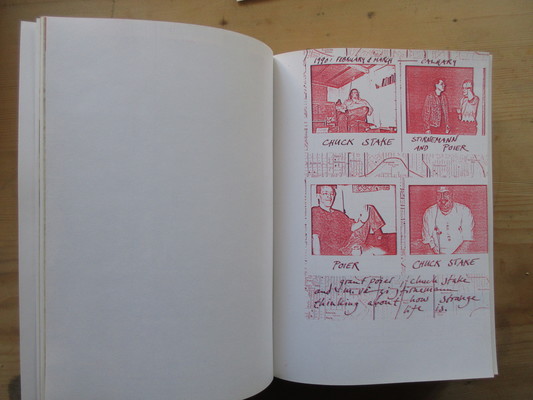 1990: FEBRUARY & MARCH
CALGARY
CHUCK STAKE
STIRNEMANN
AND POIER
POIER
CHUCK STAKE
grant poier / chuck stake
and m.vänçi stirnemann
thinking about how strange
life is.